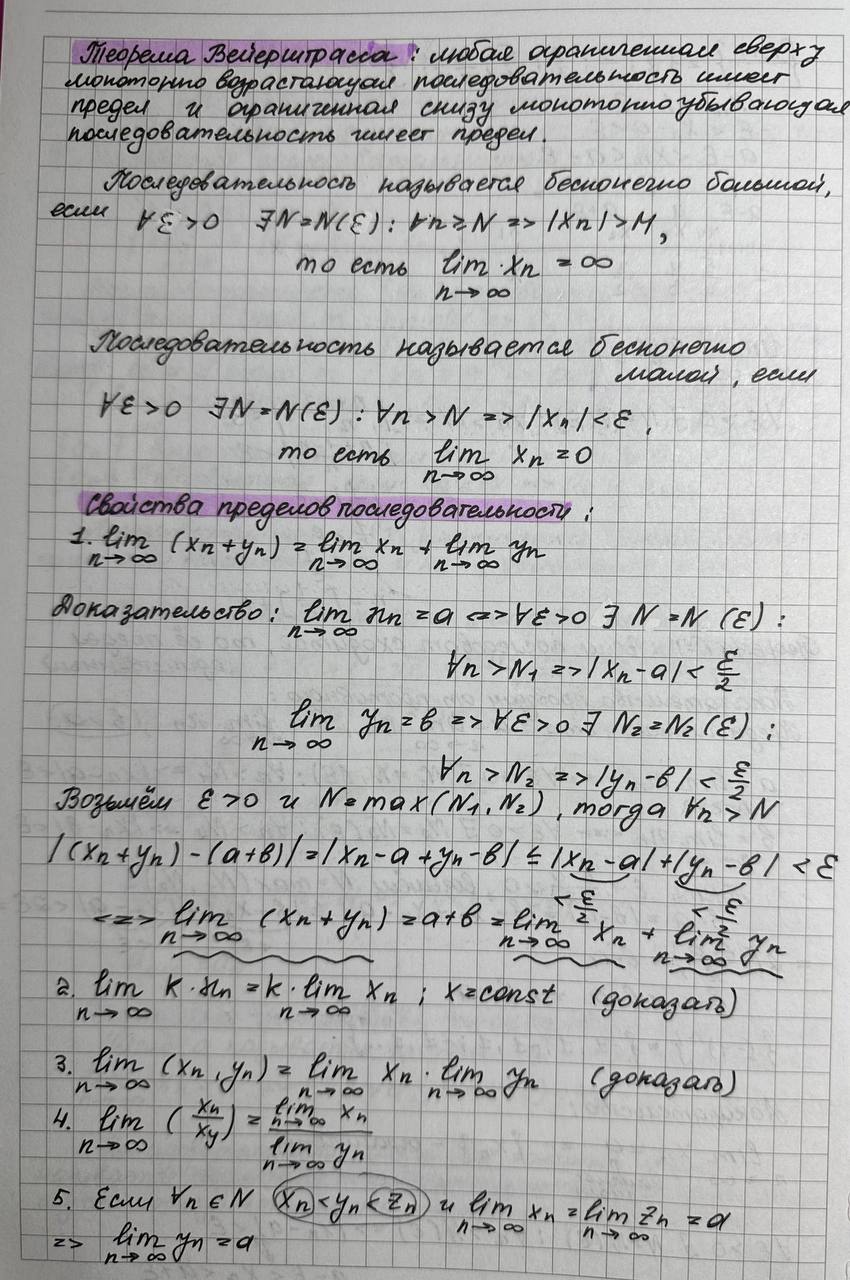 Теорема Вейерштрасса: любая ограниченная сверху
монотонно возрастающая последовательность имеет
предел и ограниченная снизу монотонно убывающая
последовательность имеет предел.
Последовательность называется бесконечно большой,
если ∀ε>0 ∃N=N(ε): ∀n≥N => |xn|>M,
то есть lim xn = ∞
n→∞
Последовательность называется бесконечно
малой, если
∀ε>0 ∃N=N(ε): ∀n>N => |xn|<ε,
то есть lim xn=0
n→∞
Свойства пределов последовательности:
1. lim (xn+yn) = lim xn + lim yn
n→∞ n→∞ n→∞
Доказательство: lim xn=a <=> ∀ε>0 ∃ N=N(ε):
n→∞
∀n>N1 => |xn-a|< ε/2
lim yn=b => ∀ε>0 ∃ N2=N2(ε):
n→∞
∀n>N2 => |yn-b|< ε/2
Возьмём ε>0 и N=max(N1,N2), тогда ∀n>N
|(xn+yn)-(a+b)|=|xn-a+yn-b| ≤ |xn-a|+|yn-b| <ε
<ε/2 <ε/2
<=> lim (xn+yn)=a+b = lim xn + lim yn
n→∞ n→∞ n→∞
2. lim k·xn=k·lim xn; x=const (доказать)
n→∞ n→∞
3. lim (xn,yn)= lim xn·lim yn (доказать)
n→∞ n→∞ n→∞
4. lim (xn/xy)= lim xn / lim yn
n→∞ n→∞ n→∞
5. Если ∀n∈N xn<yn<zn и lim xn=lim zn=a
n→∞ n→∞
=> lim yn=a
n→∞